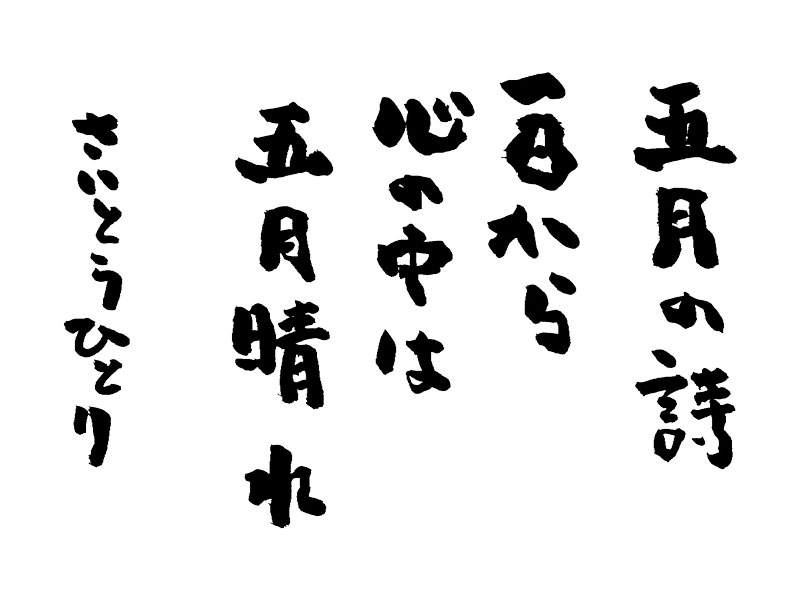 五月の詩
一日から
心の中は
五月晴れ
さいとうひとり